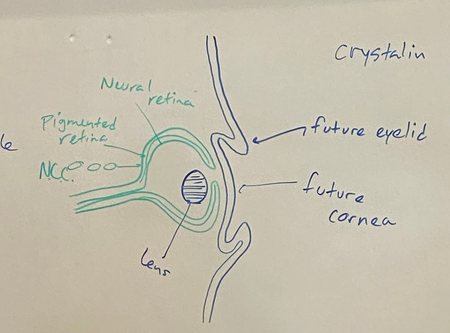 Crystalin
Neural
retina
Pigmented
retina
NCC
future eyelid
future
cornea
lens